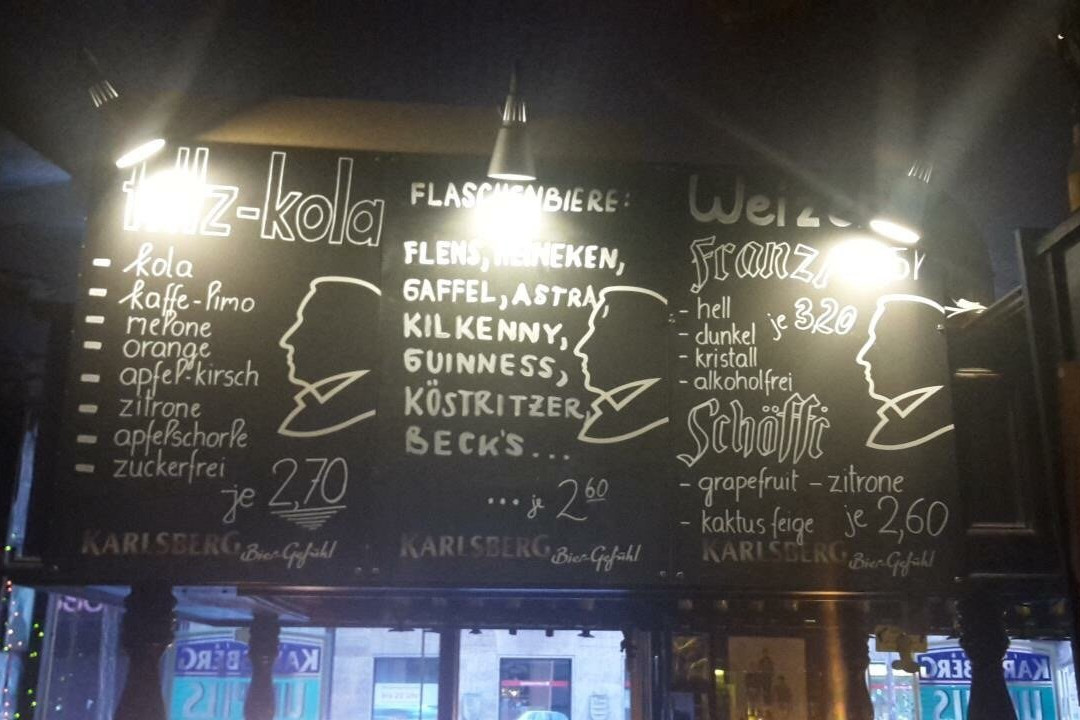 fritz-kola
- kola
- kaffe-limo
- melone
- orange
- apfel-kirsch
- zitrone
- apfelschorle
- zuckerfrei
je 2,70
KARLSBERG Bier-Gefühl
FLASCHENBIERE:
FLENS, HEINEKEN,
GAFFEL, ASTRA,
KILKENNY,
GUINNESS,
KÖSTRITZER,
BECK'S...
... je 2 60
KARLSBERG Bier-Gefühl
- hell
- dunkel je 3,20
- kristall
- alkoholfrei
Schöffe
- grapefruit - zitrone
- kaktusfeige je 2,60
KARLSBERG Bier-Gefühl
KARLSBERG
KARLSBERG